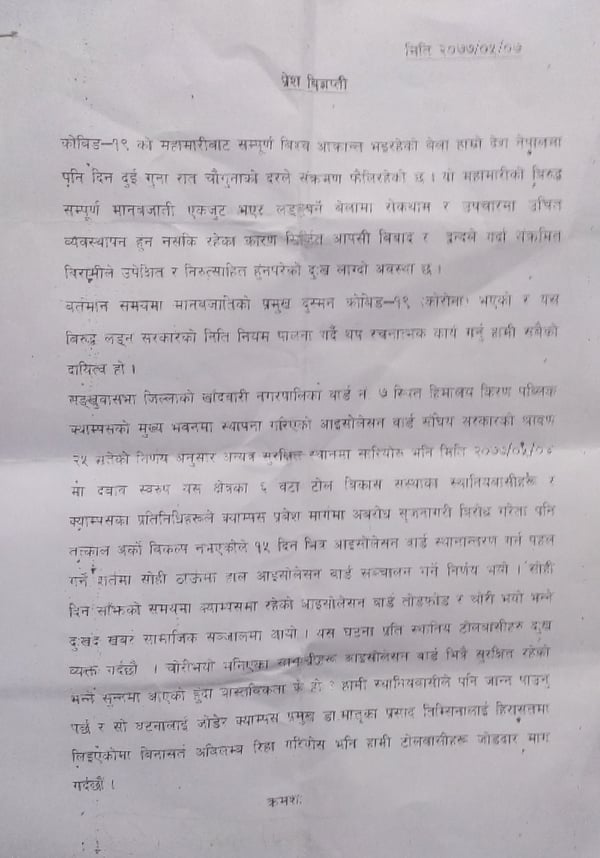 मिति २०७७/०५/०७
प्रेश बिज्ञप्ती
कोबिड-१९ को महामारीबाट सम्पूर्ण विश्व आक्रान्त भइरहेको बेला हाम्रो देश नेपालमा
पनि दिन दुई गुना रात चौगुनाको दरले संक्रमण फैलिरहेको छ । यो महामारीको बिरुद्ध
सम्पूर्ण मानबजाती एकजुट भएर लड्नुपर्ने बेलामा रोकथाम र उपचारमा उचित
व्यवस्थापन हुन नसकि रहेका कारण सिर्जित आपसी बिबाद र द्वन्दले गर्दा संक्रमित
बिरामीले उपेक्षित र निरुत्साहित हुनुपरेको दुःख लाग्दो अवस्था छ ।
बर्तमान समयमा मानबजातिको प्रमुख दुस्मन कोबिड-१९ (कोरोना) भएको र यस
बिरुद्ध लड्न सरकारको निति नियम पालना गर्दै थप रचनात्मक कार्य गर्नु हामी सबैको
दायित्व हो ।
सङ्खुवासभा जिल्लाको खाँदवारी नगरपालिका वार्ड नं. ७ स्थित हिमालय किरण पब्लिक
क्याम्पसको मुख्य भवनमा स्थापना गरिएको आइसोलेसन वार्ड संघिय सरकारको श्रावण
२५ गतेको निर्णय अनुसार अन्यत्र सुरक्षित स्थानमा सारियोस् भनि मिति २०७७/०५/०६
मा दवाव स्वरुप यस क्षेत्रका ६ वटा टोल विकास संस्थाका स्थानियबासीहरू र
क्याम्पसका प्रतिनिधिहरूले क्याम्पस प्रबेश मार्गमा अबरोध सृजनागरी बिरोध गरेता पनि
तत्काल अर्को बिकल्प नभएकोले १५ दिन भित्र आइसोलेसन वार्ड स्थानान्तरण गर्न पहल
गर्ने शर्तमा सोही ठाउँमा हाल आइसोलेसन बार्ड सञ्चालन गर्ने निर्णय भयो । सोही
दिन साँझको समयमा क्याम्पसमा रहेको आइसोलेसन वार्ड तोडफोड र चोरी भयो भन्ने
दुःखद खबर सामाजिक सञ्जालमा आयो । यस घटना प्रति स्थानिय टोलबासीहरु दुःख
व्यक्त गर्दछौं । चोरीभयो भनिएका सामग्रीहरू आइसोलेसन वार्ड भित्रै सुरक्षित रहेको
भन्ने सुन्नमा आएको हुँदा वास्तविकता के हो ? हामी स्थानियबासीले पनि जान्न पाउनु
पर्छ र सो घटनालाई जोडेर क्याम्पस प्रमुख डा.मातृका प्रसाद तिम्सिनालाई हिरासतमा
लिइएकोमा बिनासर्त अबिलम्ब रिहा गरियोस भनि हामी टोलबासीहरू जोडदार माग
गर्दछौं ।
क्रमशः